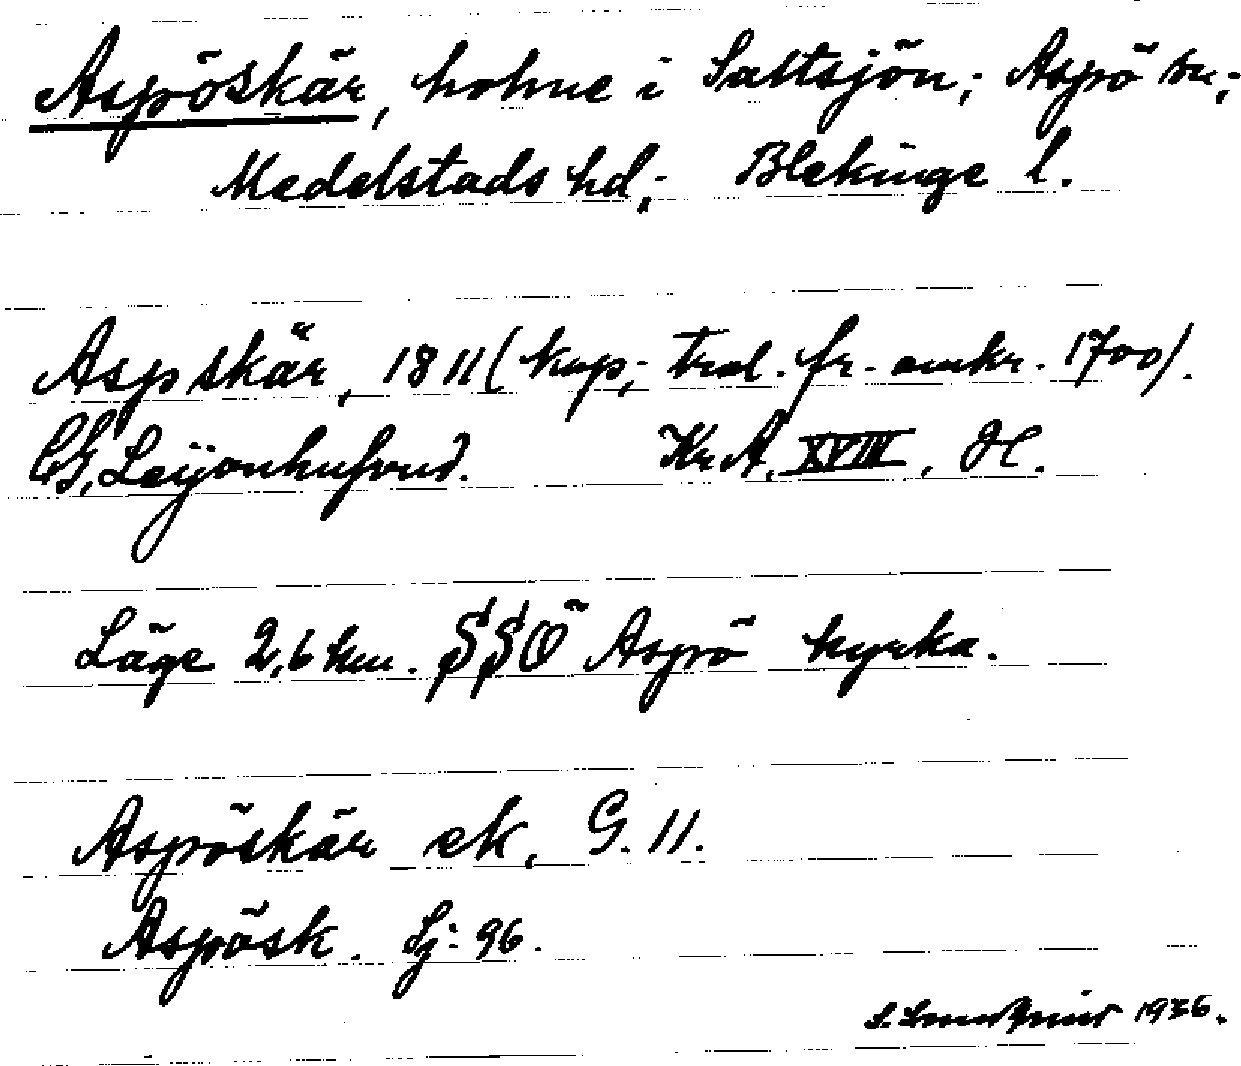 Aspöskär, holme i Saltsjön; Aspö sn;
Medelstads hd; Blekinge l.
Aspskär, 1811 (kop; trol. fr. omkr. 1700).
CG, Leijonhufvud. KrA. XVIII, H.
Läge 2,6 km. SSÖ Aspö kyrka.
Aspöskär ek. G. 11.
Aspösk. Sj: 96.
1936.